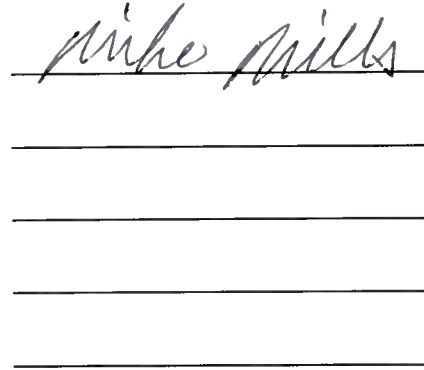 Mike Mills